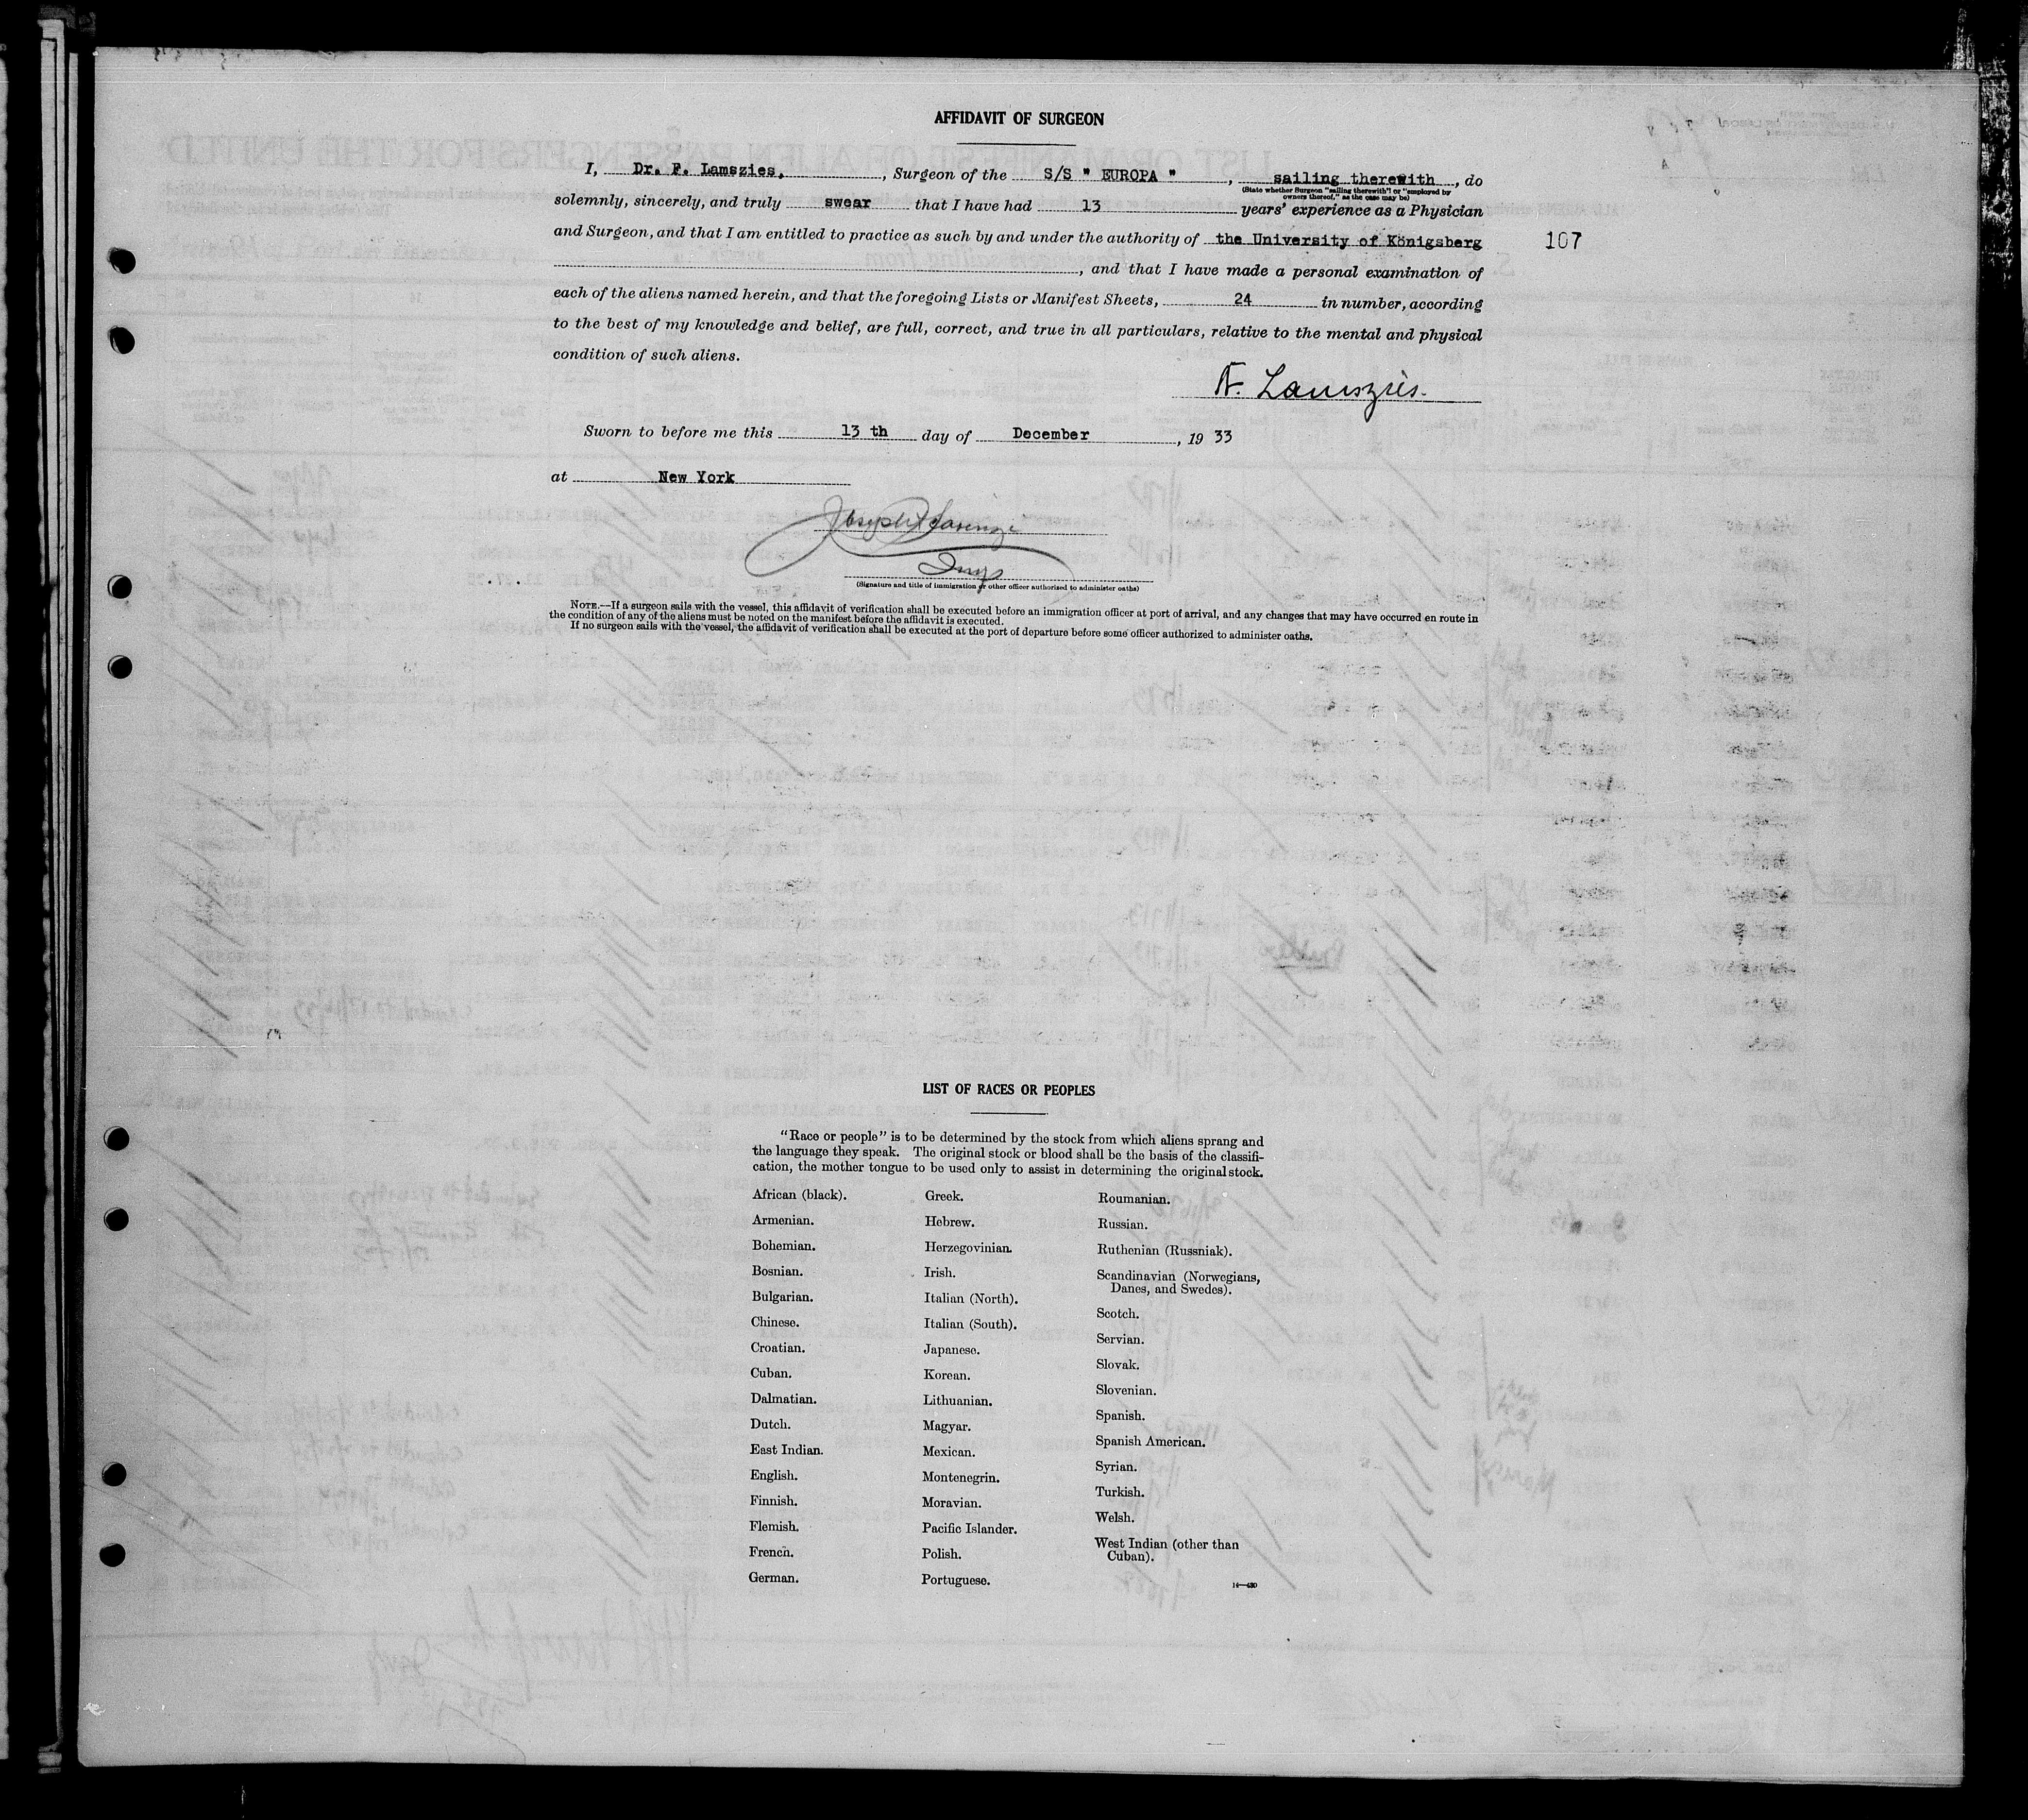 AFFIDAVIT OF SURGEON
I, Dr. F. Lamszies, , Surgeon of the S/S " EUROPA " , sailing therewith , do
(State whether Surgeon "sailing therewith" or "employed by
owners thereof," as the case may be)
solemnly, sincerely, and truly swear that I have had 13 years' experience as a Physician
and Surgeon, and that I am entitled to practice as such by and under the authority of the University of Königsberg
107
, and that I have made a personal examination of
each of the aliens named herein, and that the foregoing Lists or Manifest Sheets, 24 in number, according
to the best of my knowledge and belief, are full, correct, and true in all particulars, relative to the mental and physical
condition of such aliens.
F. Lamszies.
Sworn to before me this 13 th day of December , 19 33
at New York
Joseph
Insp
(Signature and title of immigration or other officer authorized to administer oaths)
NOTE.—If a surgeon sails with the vessel, this affidavit of verification shall be executed before an immigration officer at port of arrival, and any changes that may have occurred en route in
the condition of any of the aliens must be noted on the manifest before the affidavit is executed.
If no surgeon sails with the vessel, the affidavit of verification shall be executed at the port of departure before some officer authorized to administer oaths.
LIST OF RACES OR PEOPLES
"Race or people" is to be determined by the stock from which aliens sprang and
the language they speak. The original stock or blood shall be the basis of the classifi-
cation, the mother tongue to be used only to assist in determining the original stock.
African (black).
Armenian.
Bohemian.
Bosnian.
Bulgarian.
Chinese.
Croatian.
Cuban.
Dalmatian.
Dutch.
East Indian.
English.
Finnish.
Flemish.
French.
German.
Greek.
Hebrew.
Herzegovinian.
Irish.
Italian (North).
Italian (South).
Japanese.
Korean.
Lithuanian.
Magyar.
Mexican.
Montenegrin.
Moravian.
Pacific Islander.
Polish.
Portuguese.
Roumanian.
Russian.
Ruthenian (Russniak).
Scandinavian (Norwegians,
Danes, and Swedes).
Scotch.
Servian.
Slovak.
Slovenian.
Spanish.
Spanish American.
Syrian.
Turkish.
Welsh.
West Indian (other than
Cuban).
14—430